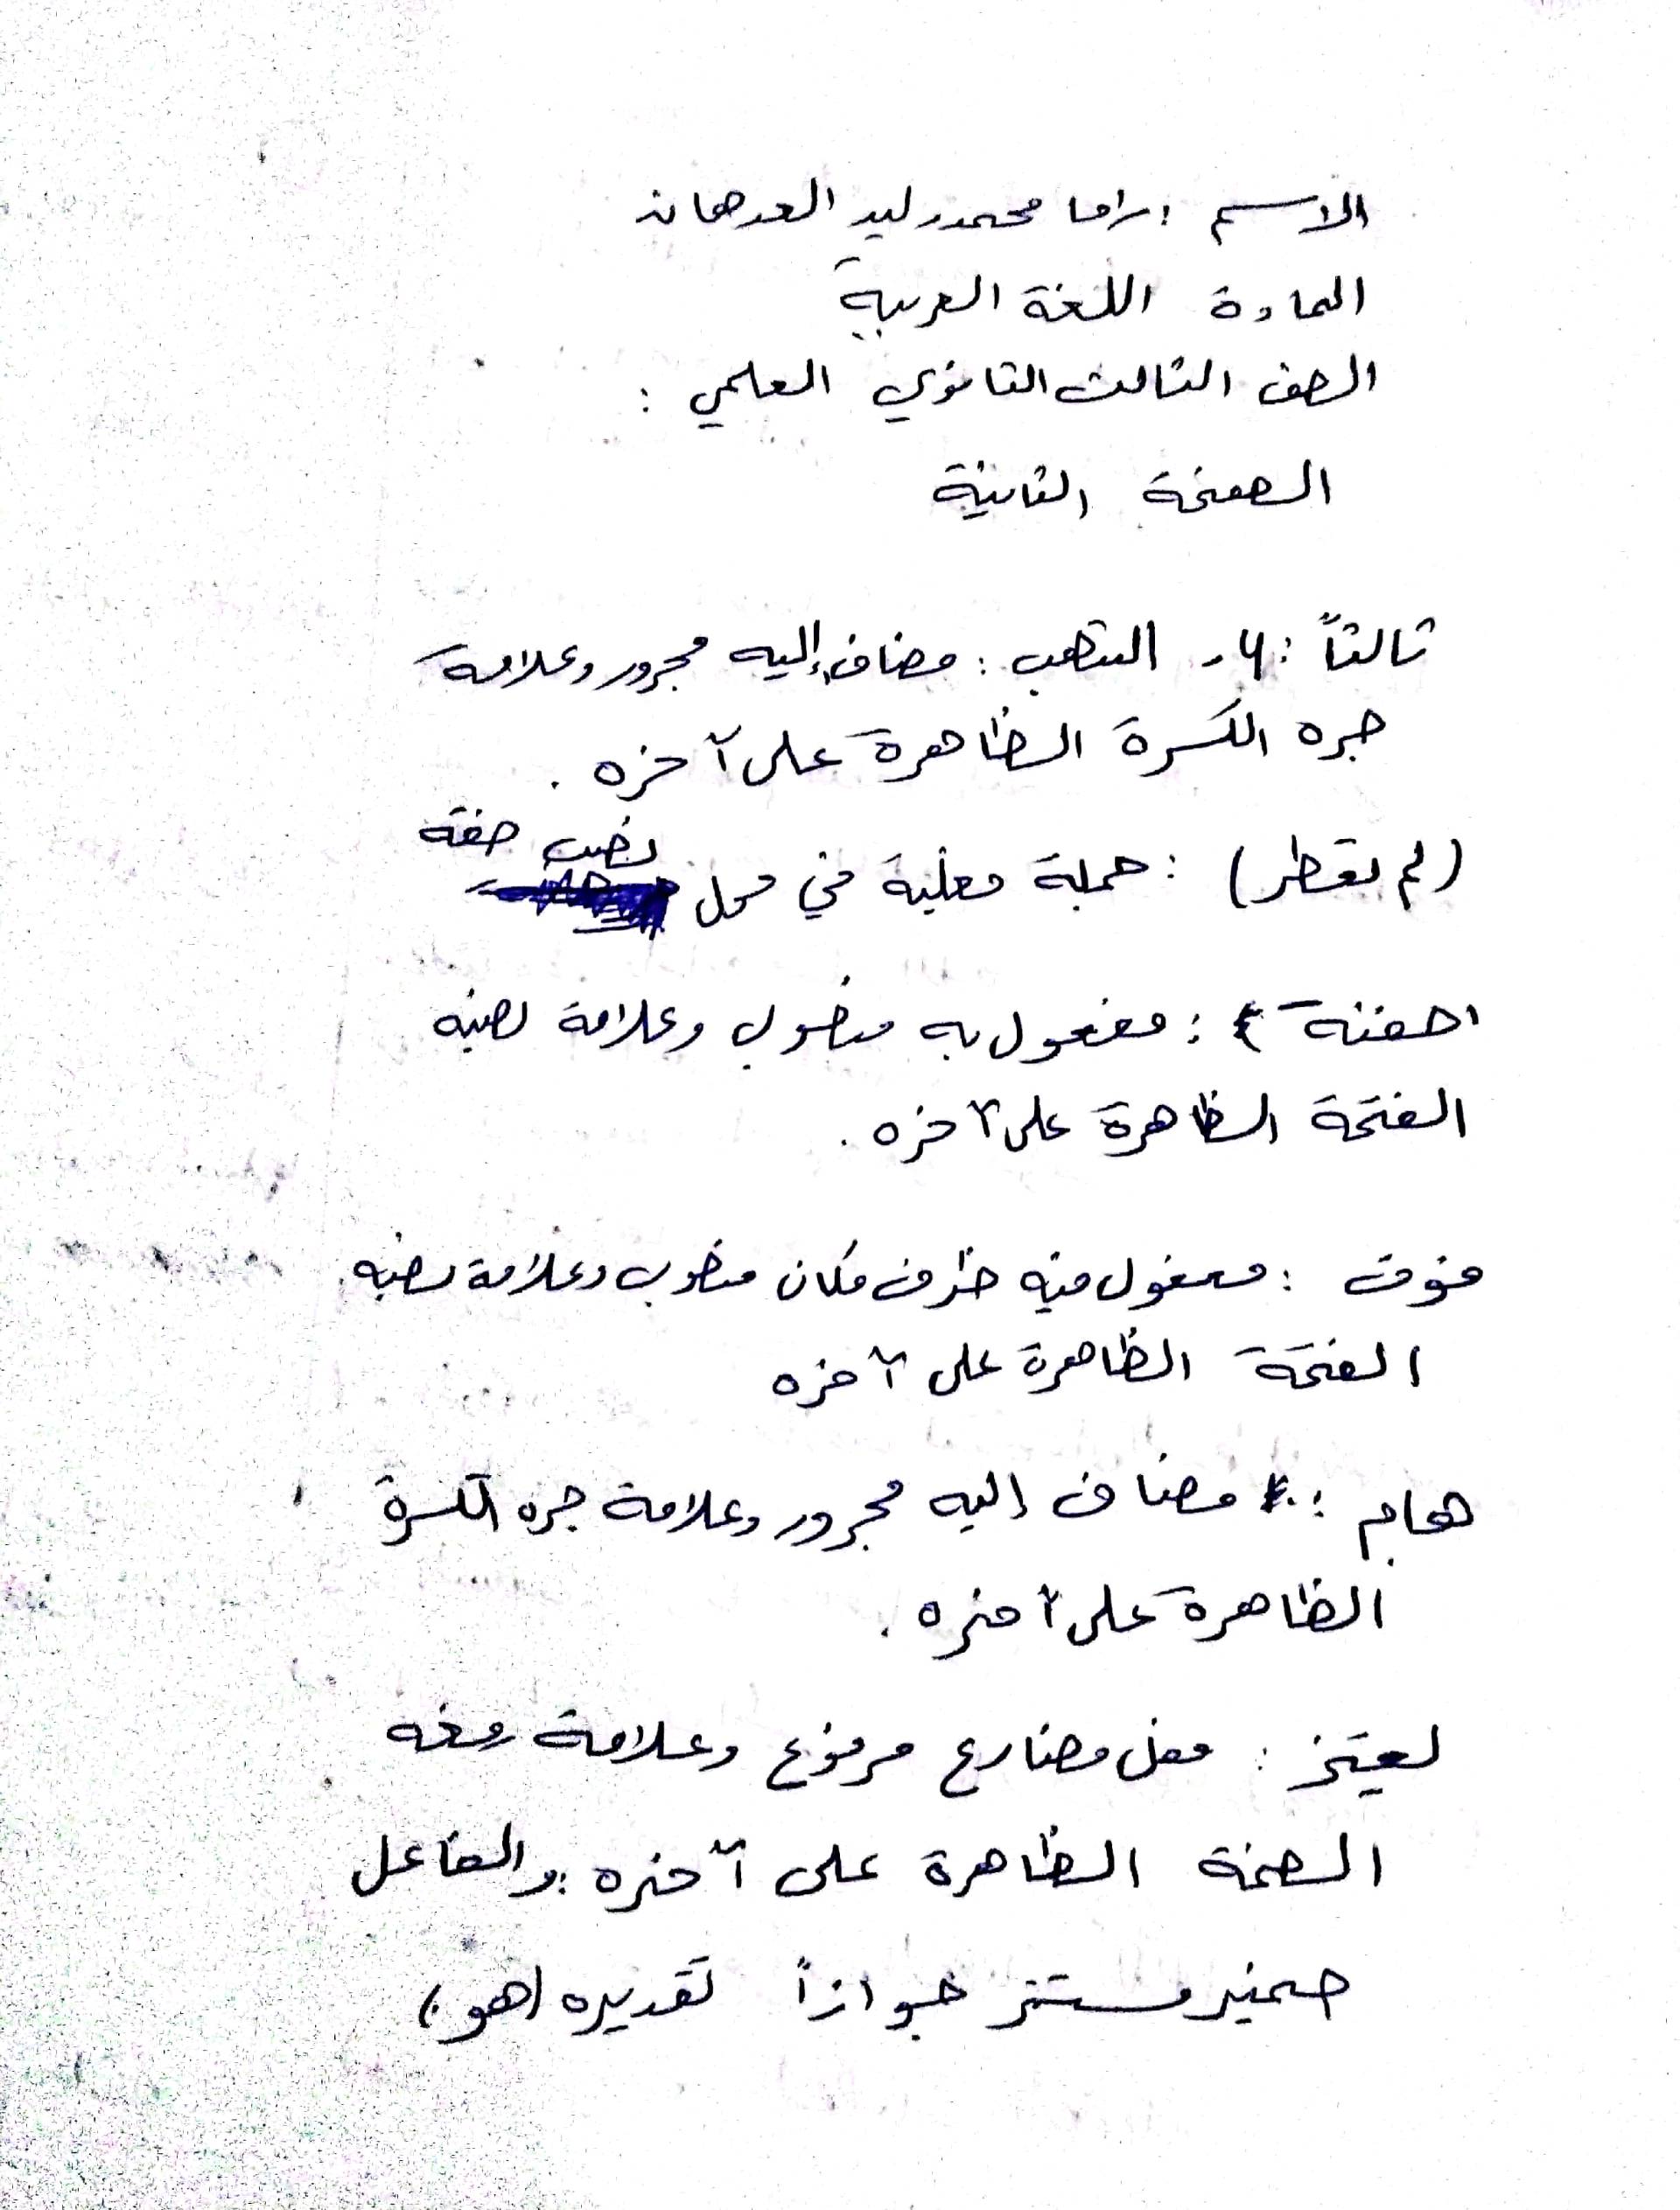 الاسم : راما محمد وليد العدهان
المادة اللغة العربية
الصف الثالث الثانوي العلمي :
الصفحة الثانية
ثالثاً : ٤- الشهب : مضاف إليه مجرور وعلامة
جره الكسرة الظاهرة على آخره .
(لم تقطر) : جملة فعلية في محل نصب صفة
: مفعول به منصوب وعلامة نصبه
الفتحة الظاهرة على آخره .
فوق : مفعول فيه ظرف مكان منصوب وعلامة نصبه
الفتحة الظاهرة على آخره
هام : مضاف إليه مجرور وعلامة جره الكسرة
الظاهرة على آخره .
يعتز : فعل مضارع مرفوع وعلامة رفعه
الضمة الظاهرة على آخره : والفاعل
ضمير مستتر جوازاً تقديره (هو)